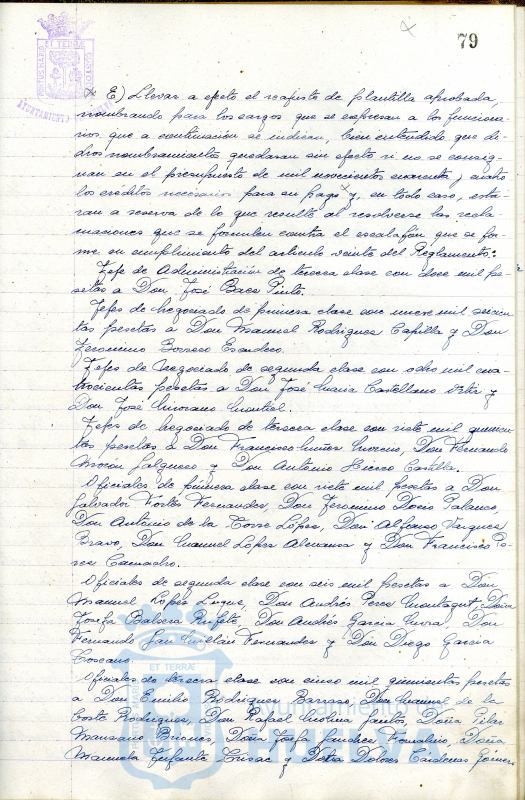 79
E) Llevar a efecto el reajuste de plantilla aprobada,
nombrando para los cargos que se expresan a los funciona-
rios que a continuación se indican, bien entendido que di-
chos nombramientos quedaran sin efecto si no se consig-
nan en el presupuesto de mil novecientos cuarenta y cuatro
los créditos necesarios para su pago y, en todo caso, esta-
ran a reserva de lo que resulte al resolverse las recla-
maciones que se formulen contra el escalafón que se for-
me en cumplimiento del articulo veinte del Reglamento:
Jefe de Administración de tercera clase con doce mil pe-
setas a Don José Baca Pinto.
Jefes de Negociado de primera clase con nueve mil seiscien-
tas pesetas a Don Manuel Rodriguez Capilla y Don
Jeronimo Borrero
Jefes de Negociado de segunda clase con ocho mil cua-
trocientas pesetas a Don José Maria Castellano Ortiz y
Don José Moreno Montiel.
Jefes de Negociado de tercera clase con siete mil quinien-
tas pesetas a Don Francisco Nuñez Moreno, Don Fernando
Moron Salguero y Don Antonio Bierro Castilla.
Oficiales de primera clase con siete mil pesetas a Don
Salvador Fortes Fernandez, Don Jeronimo Palanco,
Don Antonio de la Torre López, Don Alfonso Vazquez
Bravo, Don Manuel López Almansa y Don Francisco Pe-
rez Camacho.
Oficiales de segunda clase con seis mil pesetas a Don
Manuel López Luque, Don Andrés Perez Montagut, Doña
Josefa Balsera Rufete, Don Andrés Garcia Mora, Don
Fernando San Millán Fernandez y Don Diego Garcia
Toscano.
Oficiales de tercera clase con cinco mil quinientas pesetas
a Don Emilio Rodriguez Barroso, Don Manuel de la
Costa Rodriguez, Don Rafael Molina Santos, Doña Pilar
Manzano Briones, Doña Josefa Sanchez Doña
Manuela Infante y Doña Dolores Cárdenas Gómez
ET TERRÆ
Ayuntamiento de
HUELVA